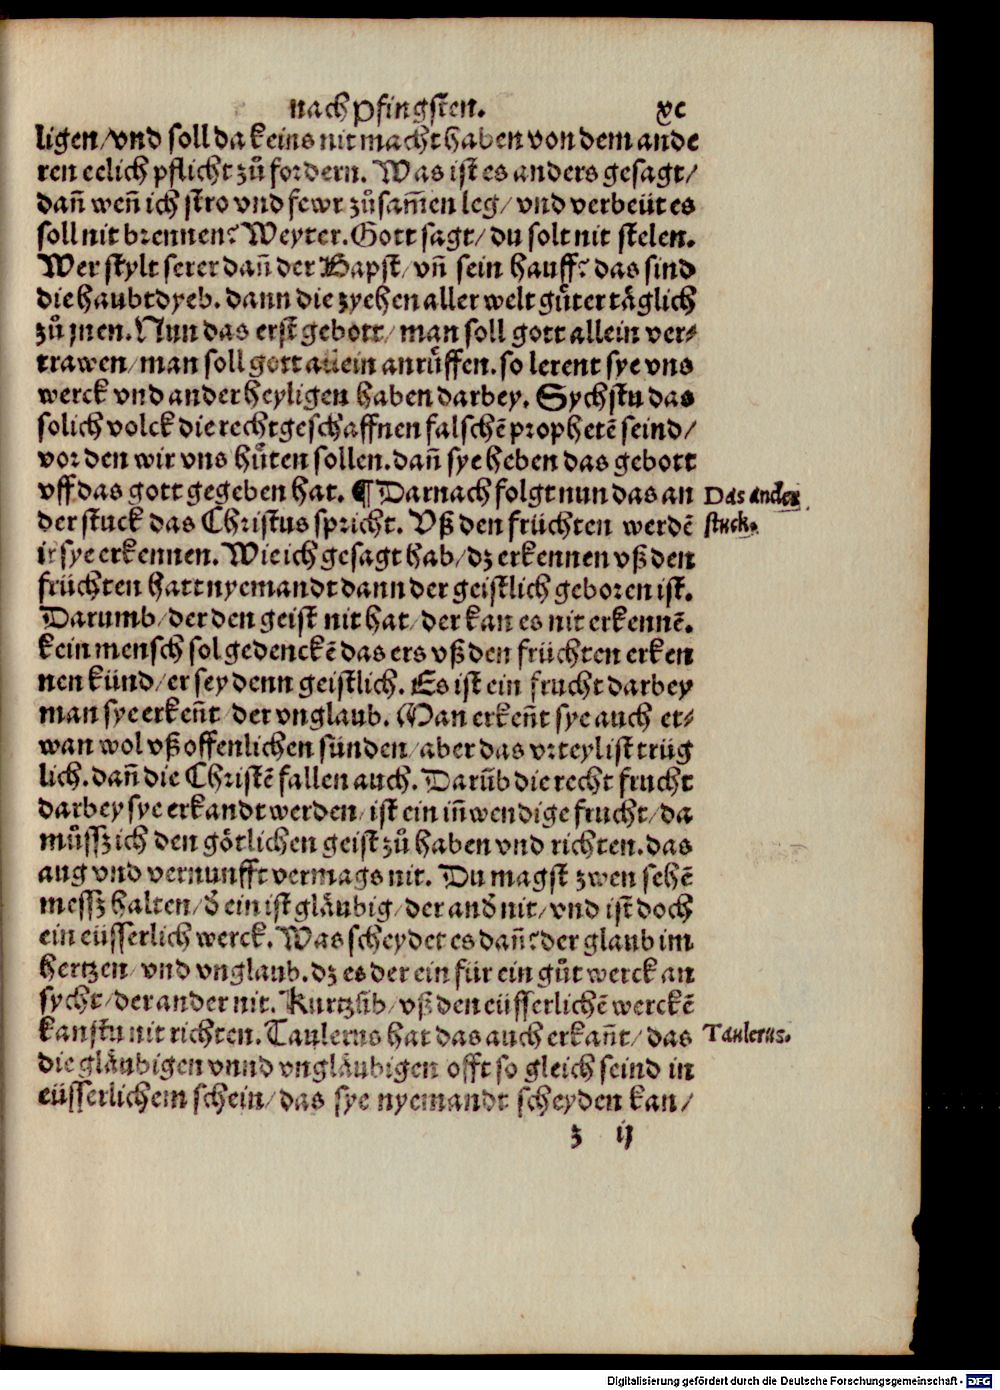 nach Pfingsten. xc
ligen/vnd soll da keins nit macht haben von dem ande
ren eelich pflicht zů fordern. Was ist es anders gesagt/
dañ weñ ich stro vnd fewr zůsam̃en leg/ vnd verbeüt es
soll nit brennen? Weyter. Gott sagt/ du solt nit stelen.
Wer stylt serer dañ der Bapst/ vñ sein hauff? das sind
die haubtdyeb. dann die zyehen aller welt gůter täglich
zů jnen. Nun das erst gebott/ man soll gott allein ver-
trawen/ man soll gott allein anrůffen. so lerent sye vns
werck vnd ander heyligen haben darbey. Sychstu das
solich volck die rechtgeschaffnen falschē prophetē seind/
vor den wir vns hůten sollen. dañ sye heben das gebott
vff das gott gegeben hat. ¶ Darnach folgt nun das an
Das ander
der stuck das Christus spricht. Vß den früchten werdē
stuck.
ir sye erkennen. Wie ich gesagt hab/ dz erkennen vß den
früchten hatt nyemandt dann der geistlich geboren ist.
Darumb/ der den geist nit hat/ der kan es nit erkennē.
kein mensch sol gedenckē das ers vß den früchten erken
nen künd/ er sey denn geistlich. Es ist ein frucht darbey
man sye erkeñt/ der vnglaub. Man erkeñt sye auch et-
wan wol vß offenlichen sünden/ aber das vrteyl ist trüg
lich. dañ die Christē fallen auch. Darũb die recht frucht
darbey sye erkandt werden/ ist ein iñwendige frucht/ da
můssz ich den götlichen geist zů haben vnd richten. das
aug vnd vernunfft vermags nit. Du magst zwen sehē
messz halten/ d̄ ein ist gläubig/ der and̄ nit/ vnd ist doch
ein eüsserlich werck. Was scheydet es dañ? der glaub im
hertzen/ vnd vnglaub. dz es der ein für ein gůt werck an
sycht/ der ander nit. Kurtzũb/ vß den eüsserlichē werckē
kanstu nit richten. Taulerus hat das auch erkañt/ das
Taulerus.
die gläubigen vnnd vngläubigen offt so gleich seind in
eüsserlichem schein/ das sye nyemandt scheyden kan/
z ij
Digitalisierung gefördert durch die Deutsche Forschungsgemeinschaft - DFG